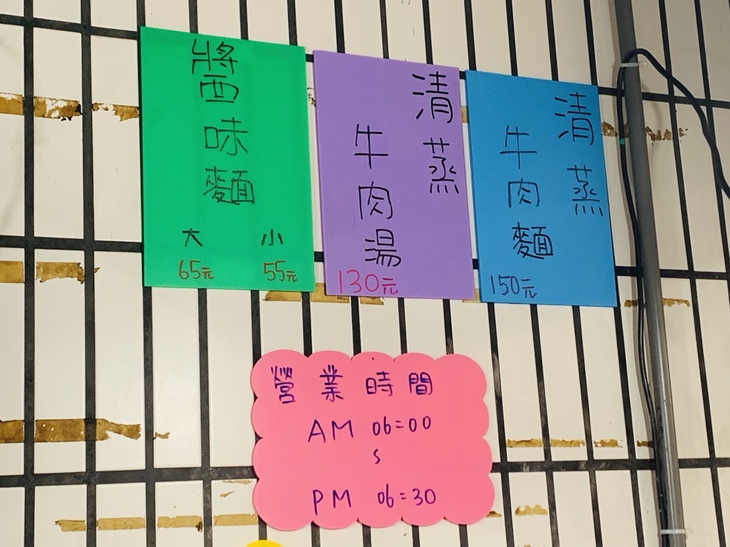 清蒸
牛肉麵
150元
清蒸
牛肉湯
130元
醬味麵
大 小
65元 55元
營業時間
AM 06:00
∫
PM 06:30